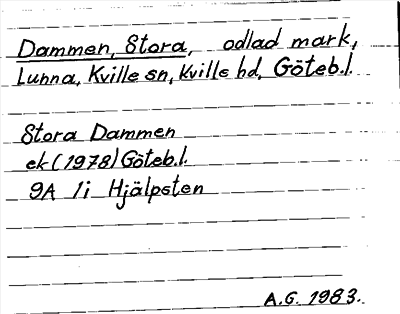 Dammen, Stora, odlad mark,
Lunna, Kville sn, Kville hd, Göteb.l.
Stora Dammen
ek (1978) Göteb.l.
9A 1i Hjälpsten
A.G. 1983.